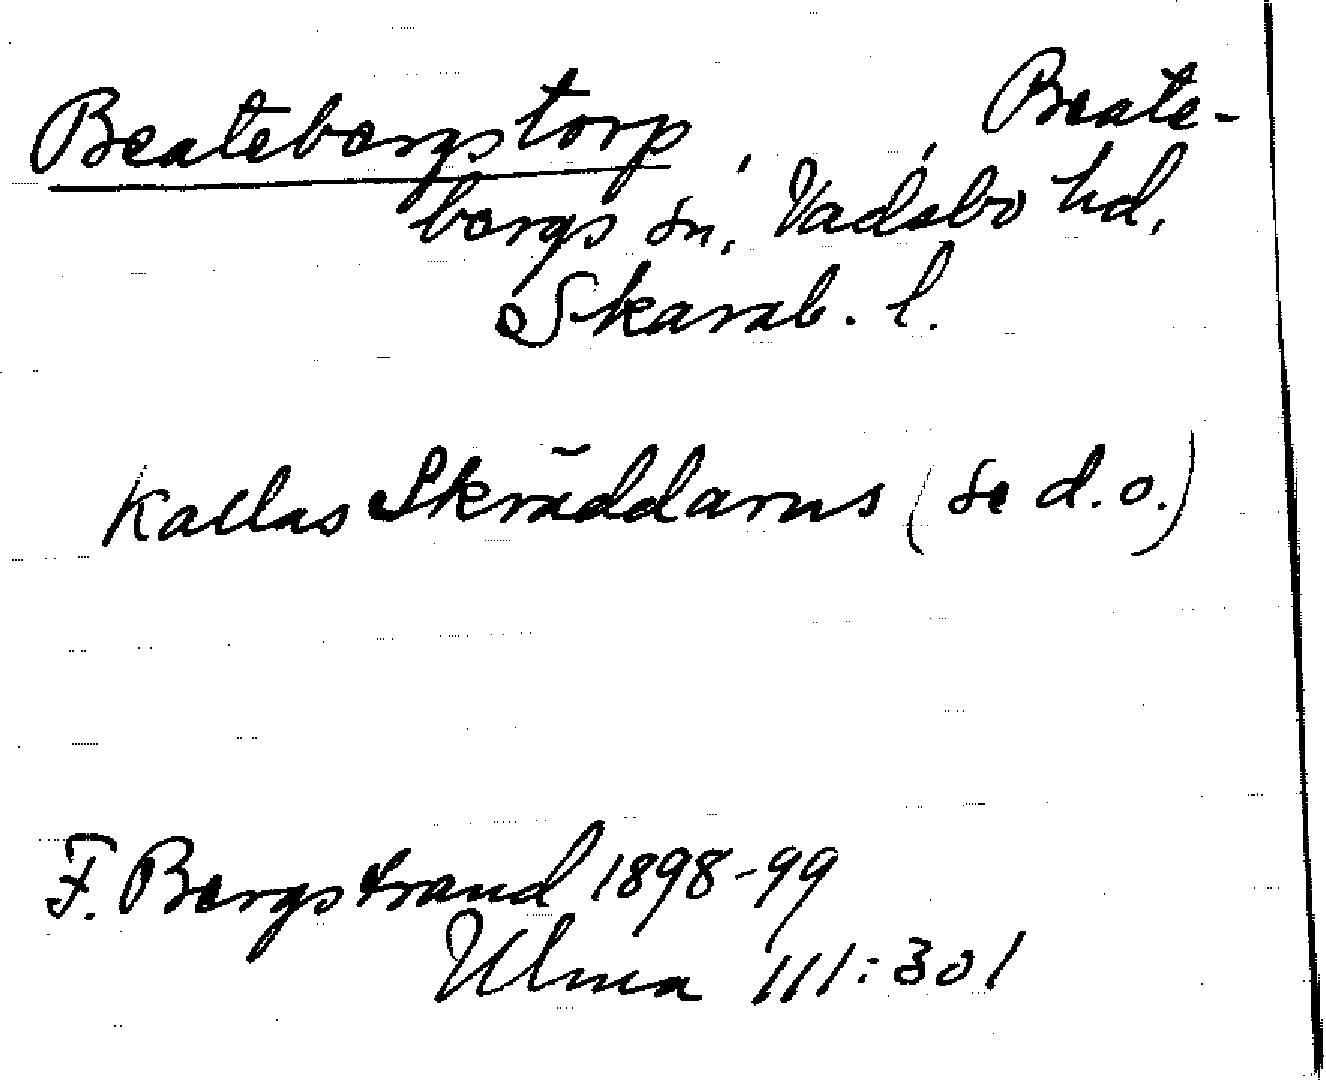 Beatebergstorp, Beate-
bergs sn, Vadsbo hd,
Skarab. l.
Kallas Skräddarns (se d.o.)
F. Bergstrand 1898-99
Ulma 111:301